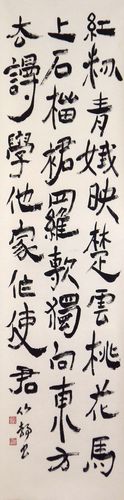 紅粉青娥映楚雲桃花馬
上石榴裙羅敷獨向東方
去謾學他家作使君
竹靜書